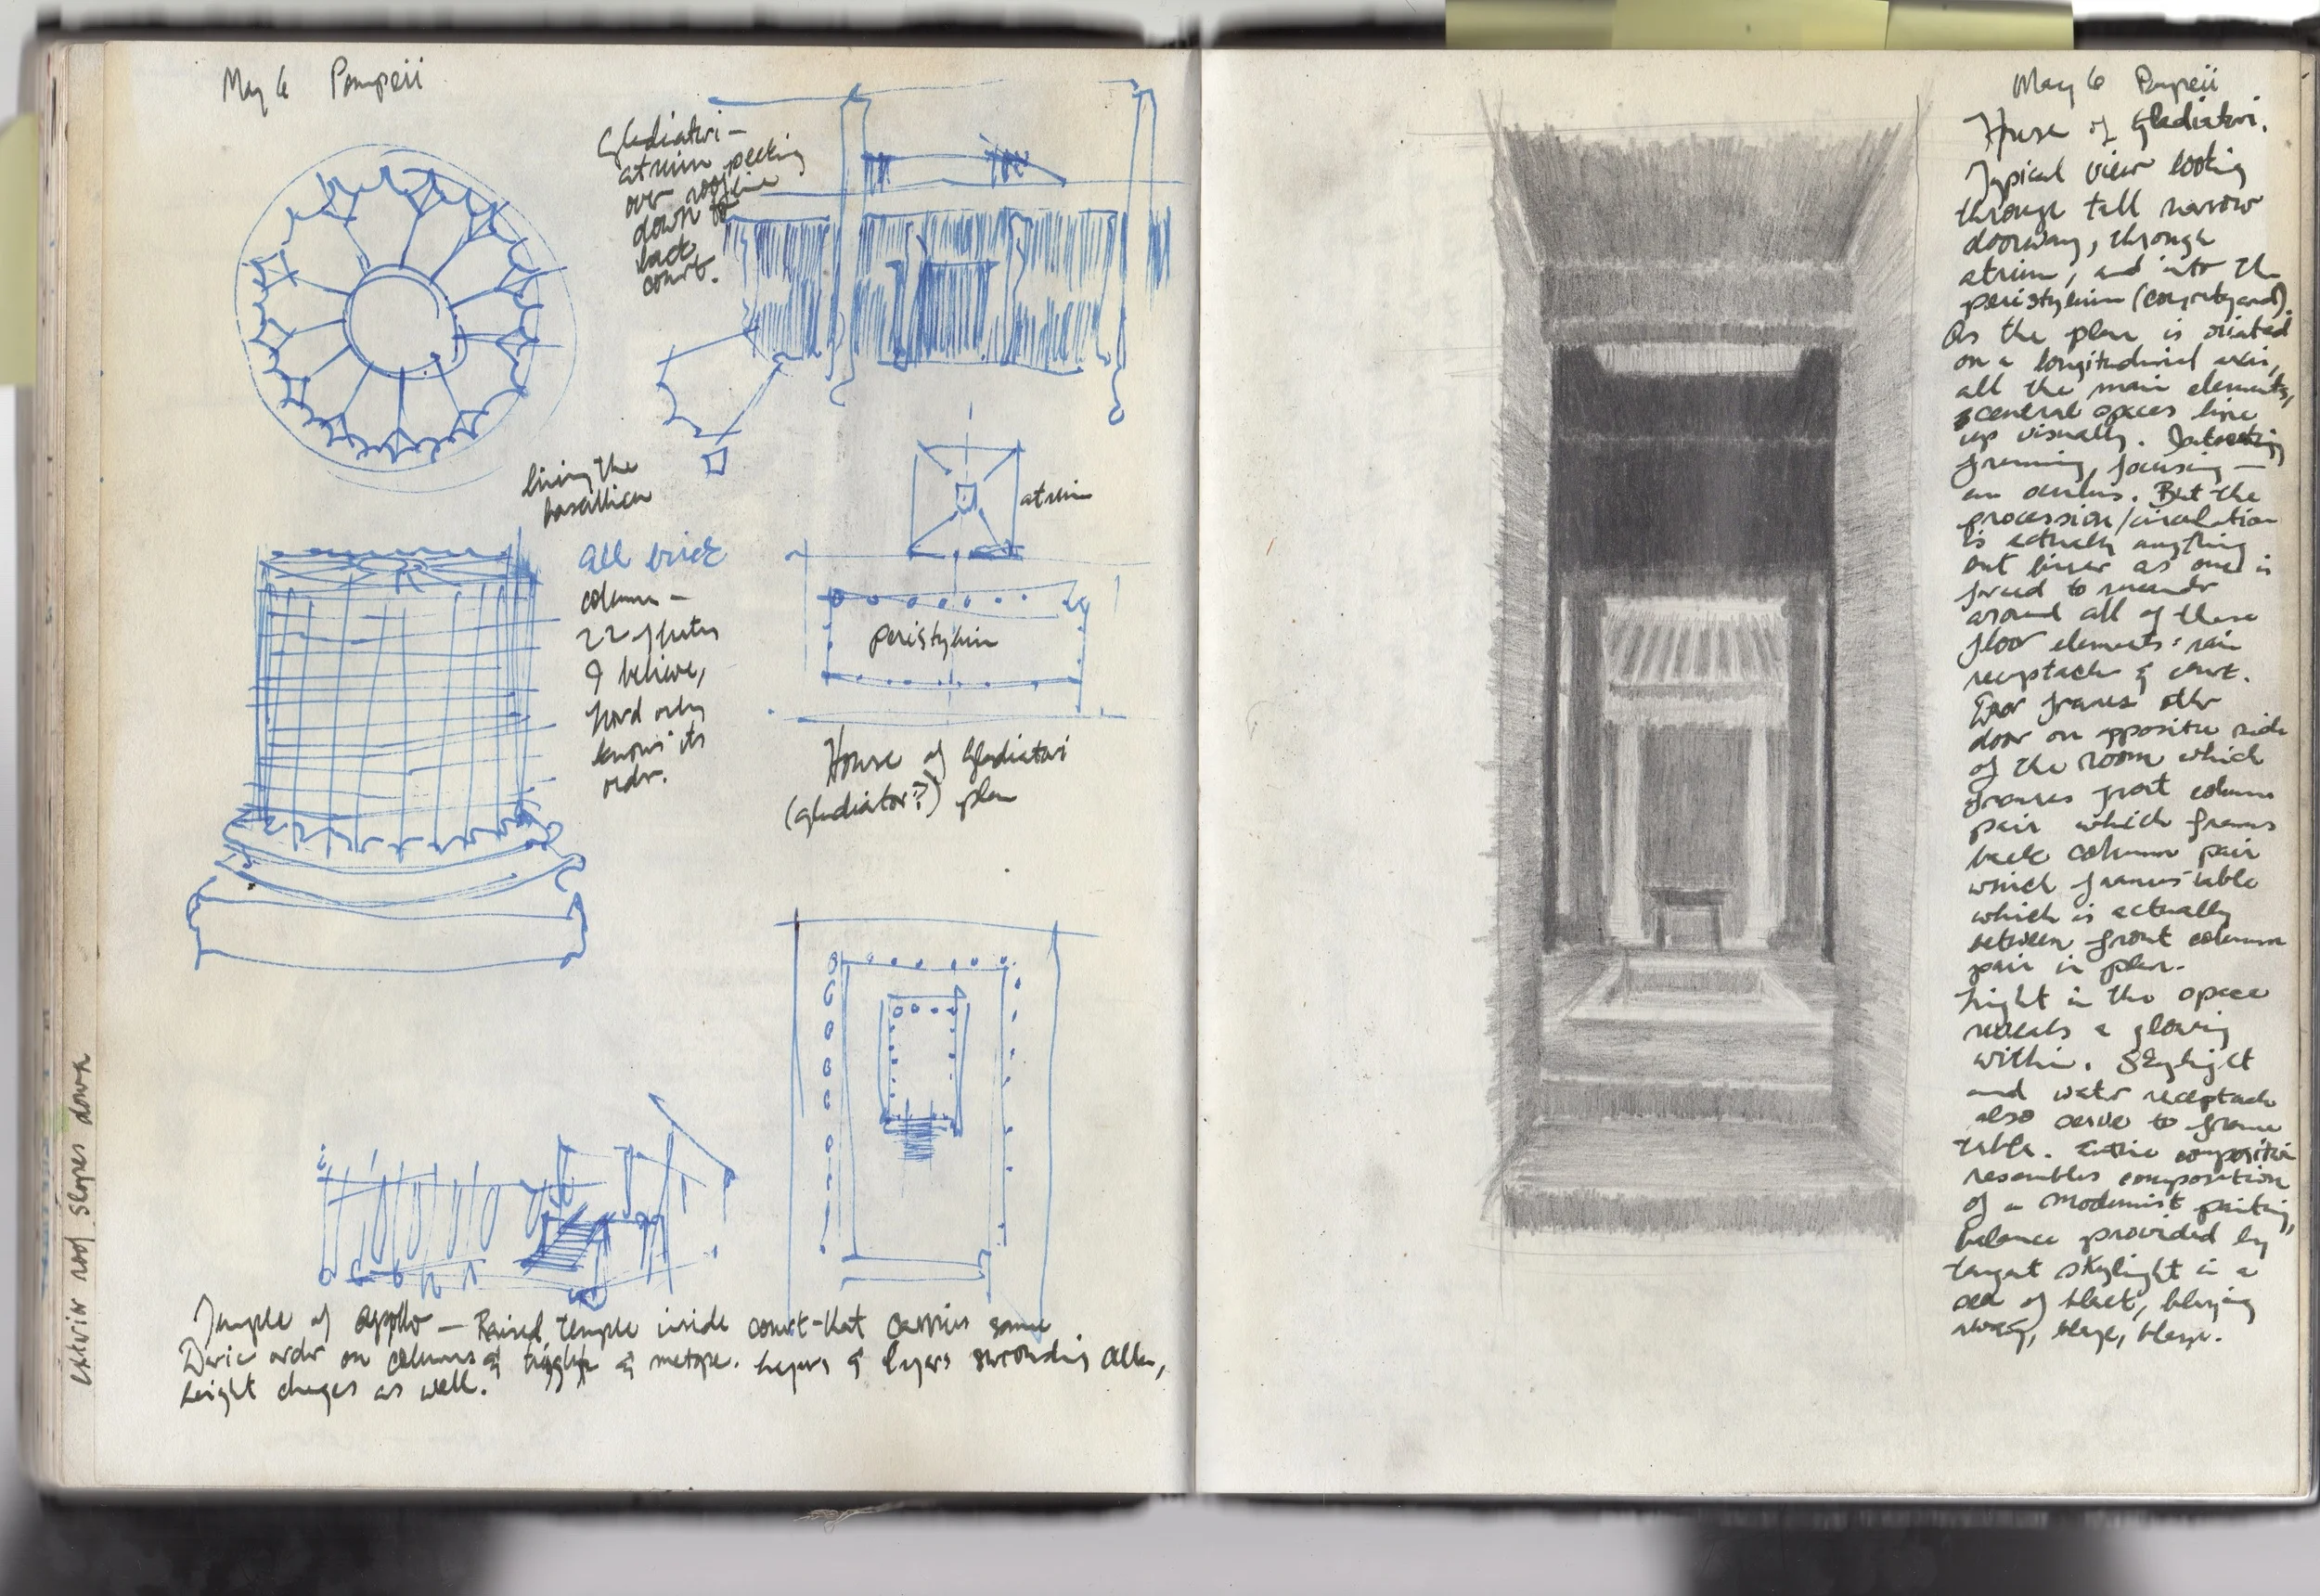 May 6 Pompeii
Gladiatori –
atrium peeking
over roofline
down to
back
court.
lining the
basillica
all brick
column –
22 flutes
I believe,
Lord only
knows its
ordr.
atrium
peristylium
House of Gladiatori
(gladiator?) plan
exterior roof slopes down
Temple of Apollo – Raised temple inside court that carries same
Doric order on columns & triglyph & metope. Layers & layers surrounding alter,
height changes as well.
May 6 Pompeii
House of Gladiatori.
Typical view looking
through tall narrow
doorway, through
atrium, and into the
peristylium (courtyard).
As the plan is oriented
on a longitudinal axis,
all the main elements,
central spaces line
up visually. Interesting
framing, focusing –
an oculus. But the
procession/circulation
is actually anything
but linear as one is
forced to meander
around all of these
floor elements: rain
receptacle & court.
Door frames other
door on opposite side
of the room which
frames front column
pair which frames
back column pair
which frames table
which is actually
between front column
pair in plan.
Light in the space
reveals a glowing
within. Skylight
and water receptacle
also serve to frame
table. Entire composition
resembles composition
of a Modernist painting,
balance provided by
skylight in a
sea of black,
blaze, blaze.